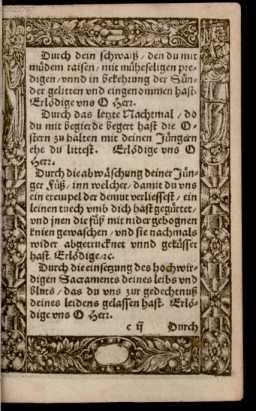 Durch dein schwaiß / den du mit
müdem raisen / mit müheseligen pre-
digen / vnnd in bekehrung der Sün-
der gelitten vnd eingenommen hast.
Erlödige vns O Herr.
Durch das letzte Nachtmal / do
du mit begierde begert hast die O-
stern zu halten mit deinen Jüngern
ehe du littest. Erlödige vns O
Herr.
Durch die abwäschung deiner Jün-
ger Füß / inn welcher / damit du vns
ein exempel der demut verliessest / ein
leinen tuech vmb dich hast gegürtet /
vnd jnen die füß mit nidergebognen
knien gewaschen / vnd sie nachmals
wider abgetrucknet vnnd geküsset
hast. Erlödige / ꝛc.
Durch die einsetzung des hochwir-
digen Sacraments deines leibs vnd
bluts / das du vns zur gedechtnuß
deines leidens gelassen hast. Erlö-
dige vns O Herr.
c ij Durch